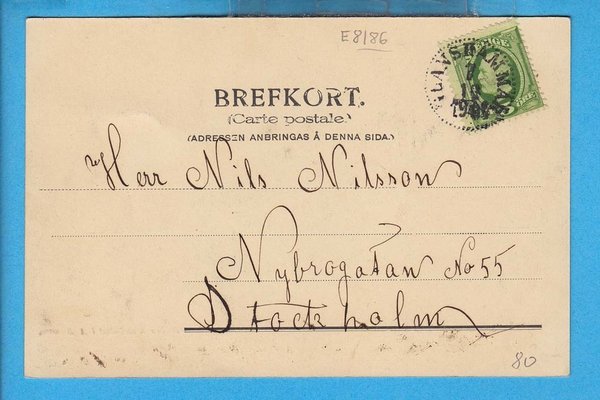 E8/86
SVERIGE
BREFKORT.
(Carte postale.)
(ADRESSEN ANBRINGAS Å DENNA SIDA.)
Herr Nils Nilsson
Nybrogatan No 55
Stockholm
80